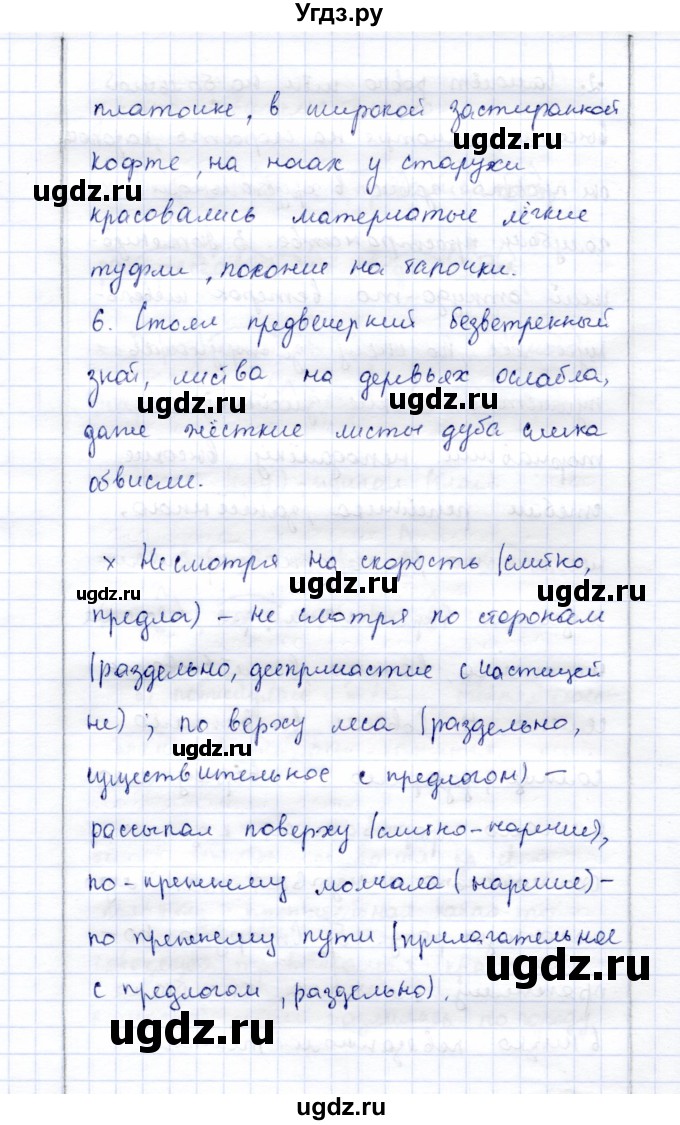 Угдз.ру
платочке, в широкой застиранной
ugdz.ru
кофте, на ногах у старухи
ugdz.ru
красовались материатые лёгкие
туфли, похожие на тапочки.
6. Стоял предвечерний безветренный
зной, листва на деревьях ослабла,
ugdz.ru ugdz.ru
даже жёсткие листы дуба слегка
обвисли.
x Несмотря на скорость (слитно,
ugdz.ru ugdz.ru ugdz.ru
предлог) – не смотря по сторонам
(раздельно, деепричастие с частицей
ugdz.ru
не); по верху леса (раздельно,
ugdz.ru
существительное с предлогом) –
рассыпал поверху (слитно-наречие),
по-прежнему молчала (наречие) –
по прежнему пути (прилагательное
ugdz.ru
с предлогом, раздельно).
ugdz.ru
ugdz.ru